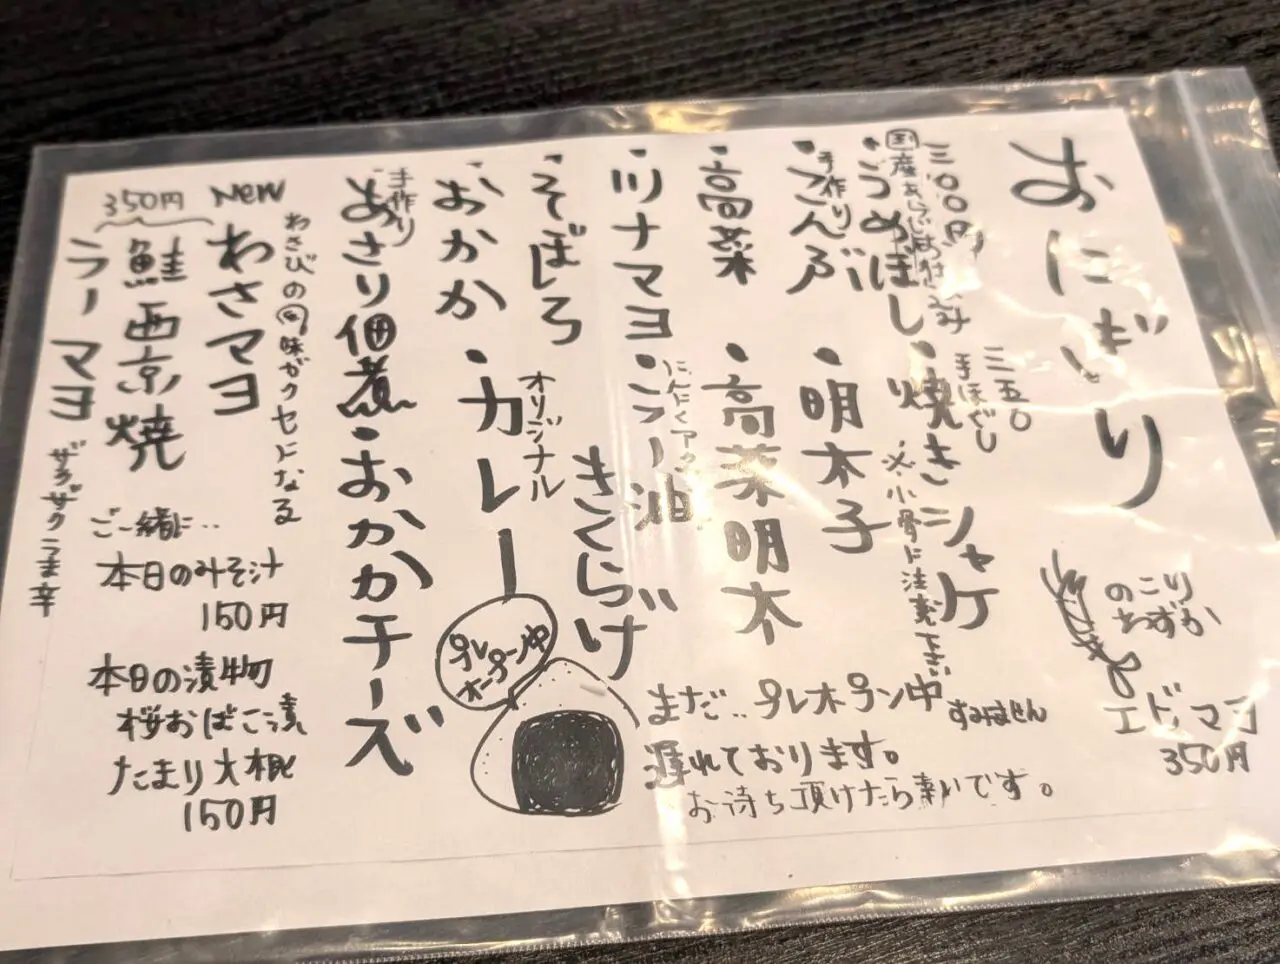 おにぎり
のこり
わずか
エビマヨ
350円
三〇〇円
・うめぼし
手作り
・こんぶ
・高菜
・ツナマヨ
・そぼろ
・おかか
手作り
あさり佃煮
三五〇
手ほぐし
・焼きシャケ
※小骨に注意下さい
・明太子
・高菜明太
・ラー油
きくらげ
オリジナル
・カレー
・おかかチーズ
NEW
わさマヨ
わさびの風味がクセになる
350円
鮭西京焼
ラーマヨ
ザクザクうま辛
ご一緒に..
本日のみそ汁
150円
本日の漬物
桜おばこ漬
たまり大根
150円
プレ
オープン中
まだ..プレオープン中
すみません
遅れております。
お待ち頂けたら幸いです。